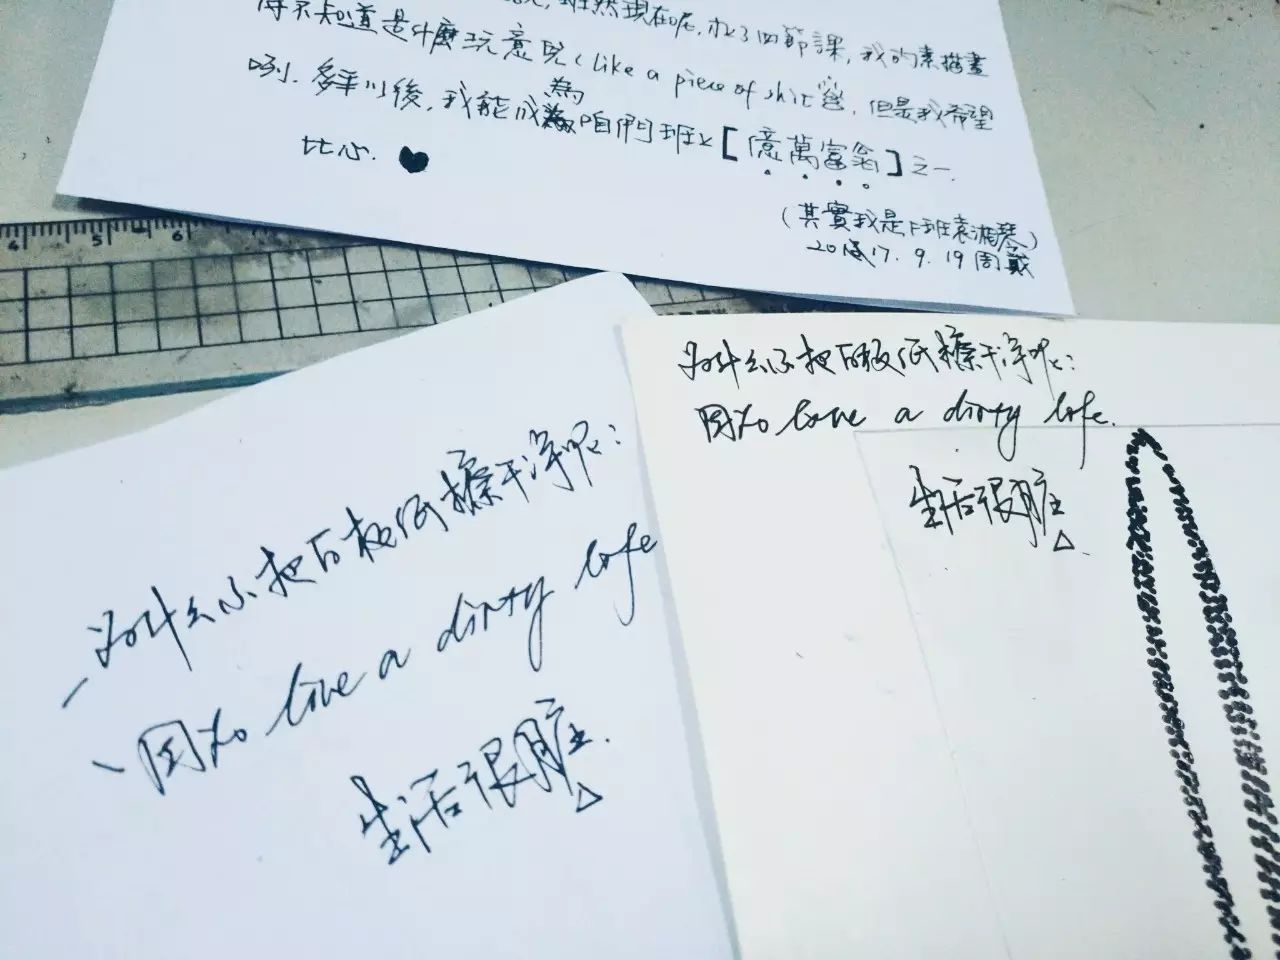 雖然現在呢,上了四節課,我的素描畫
得不知道是什麼玩意兒(like a piece of shit),但是我希望
咧.多年以後,我能成為咱們班上[億萬富翁]之一.
比心.
(其實我是F班袁湘琴)
2017.9.19 周戴
4 5 6
为什么不把石板纸擦干净呢:
因为 live a dirty life
生活很脏.
为什么不把石板纸擦干净呢:
因为 live a dirty life.
生活很脏